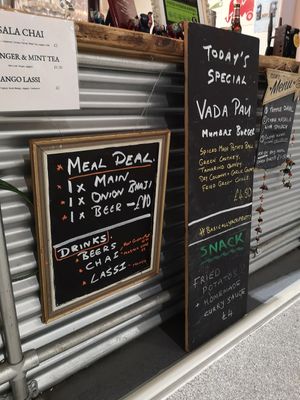 SALA CHAI
GINGER & MINT TEA
MANGO LASSI
MEAL DEAL.
1x MAIN
1x ONION BHAJI
1x BEER - £10
DRINKS.
BEERS
CHAI
LASSI
TODAY'S
SPECIAL
VADA PAU
MUMBAI BURGER
SPICED MASH POTATO BALL
GREEN CHUTNEY
TAMARIND CHUTNEY
DRY COCONUT & GARLIC CHUTNEY
FRIED GREEN CHILLI
£4.50
SNACK
FRIED
POTATOES
+ HOMEMADE
CURRY SAUCE
£4
Menu